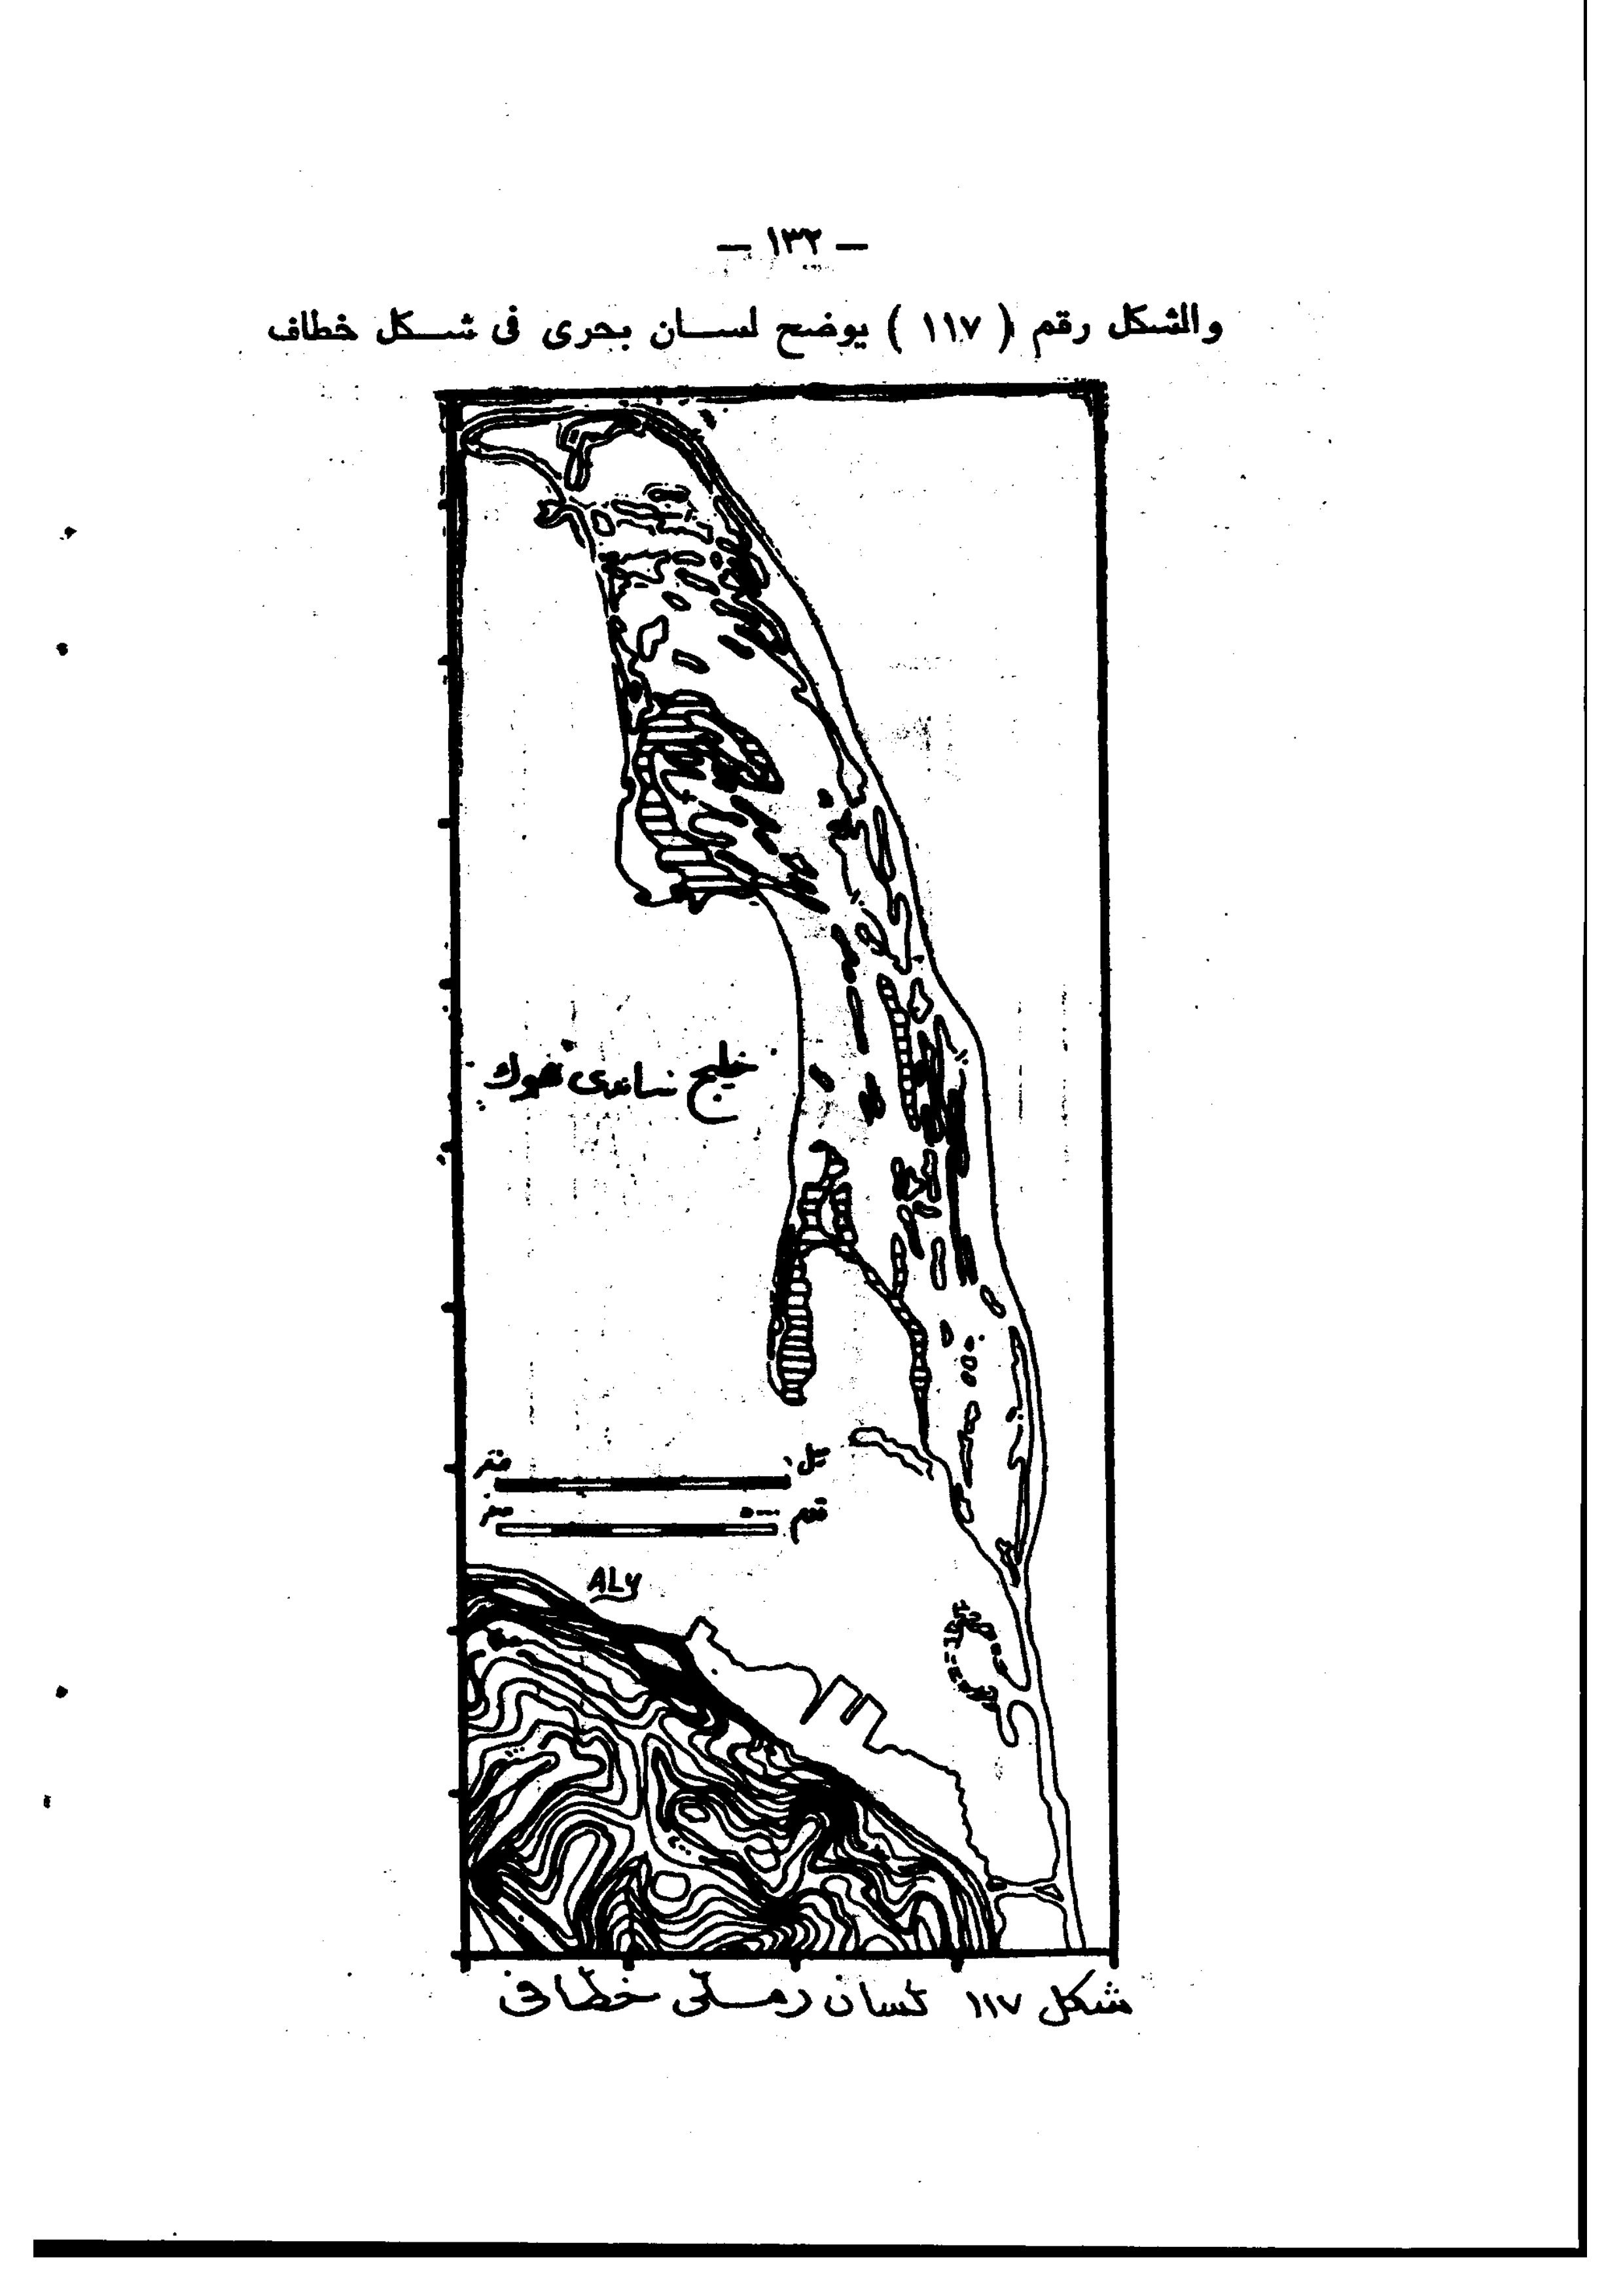 — ١٣٢ —
والشكل رقم ( ١١٧ ) يوضح لسـان بحرى فى شـكل خطاف
خليج ساندى هوك
ميل
قدم ٥٠٠٠
ALY
شكل ١١٧ لسان رملى خطافى